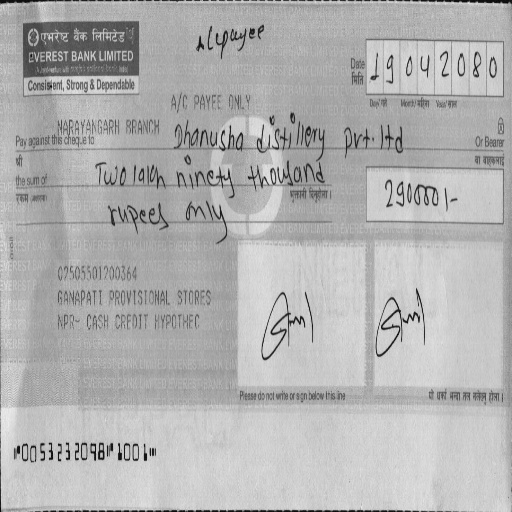 एभरेष्ट बैंक लिमिटेड
EVEREST BANK LIMITED
Consistent, Strong & Dependable
A/c payee
Date
मिति
19042080
A/C PAYEE ONLY
NARAYANGARH BRANCH
Pay against this cheque to Dhanusha distillery pvt. ltd
Or Bearer
श्री
वा वाहकलाई
the sum of Two lakh ninety thousand
रकम
rupees only
290000/-
02505501200364
GANAPATI PROVISIONAL STORES
NPR- CASH CREDIT HYPOTHEC
Please do not write or sign below this line
⑈0053232098⑈1001⑈